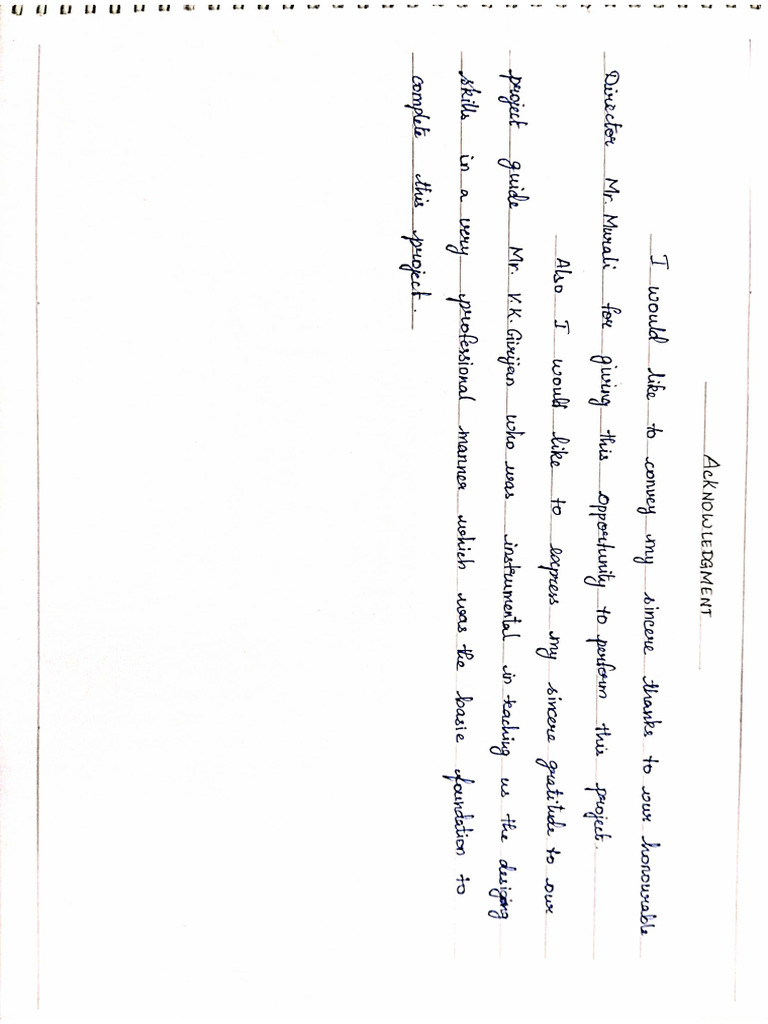 ACKNOWLEDGMENT
I would like to convey my sincere thanks to our honourable
Director Mr. Murali for giving this opportunity to perform this project.
Also I would like to express my sincere gratitude to our
project guide Mr. V.K. Girijan who was instrumental in teaching us the desiging
skills in a very professional manner which was the basic foundation to
complete this project.